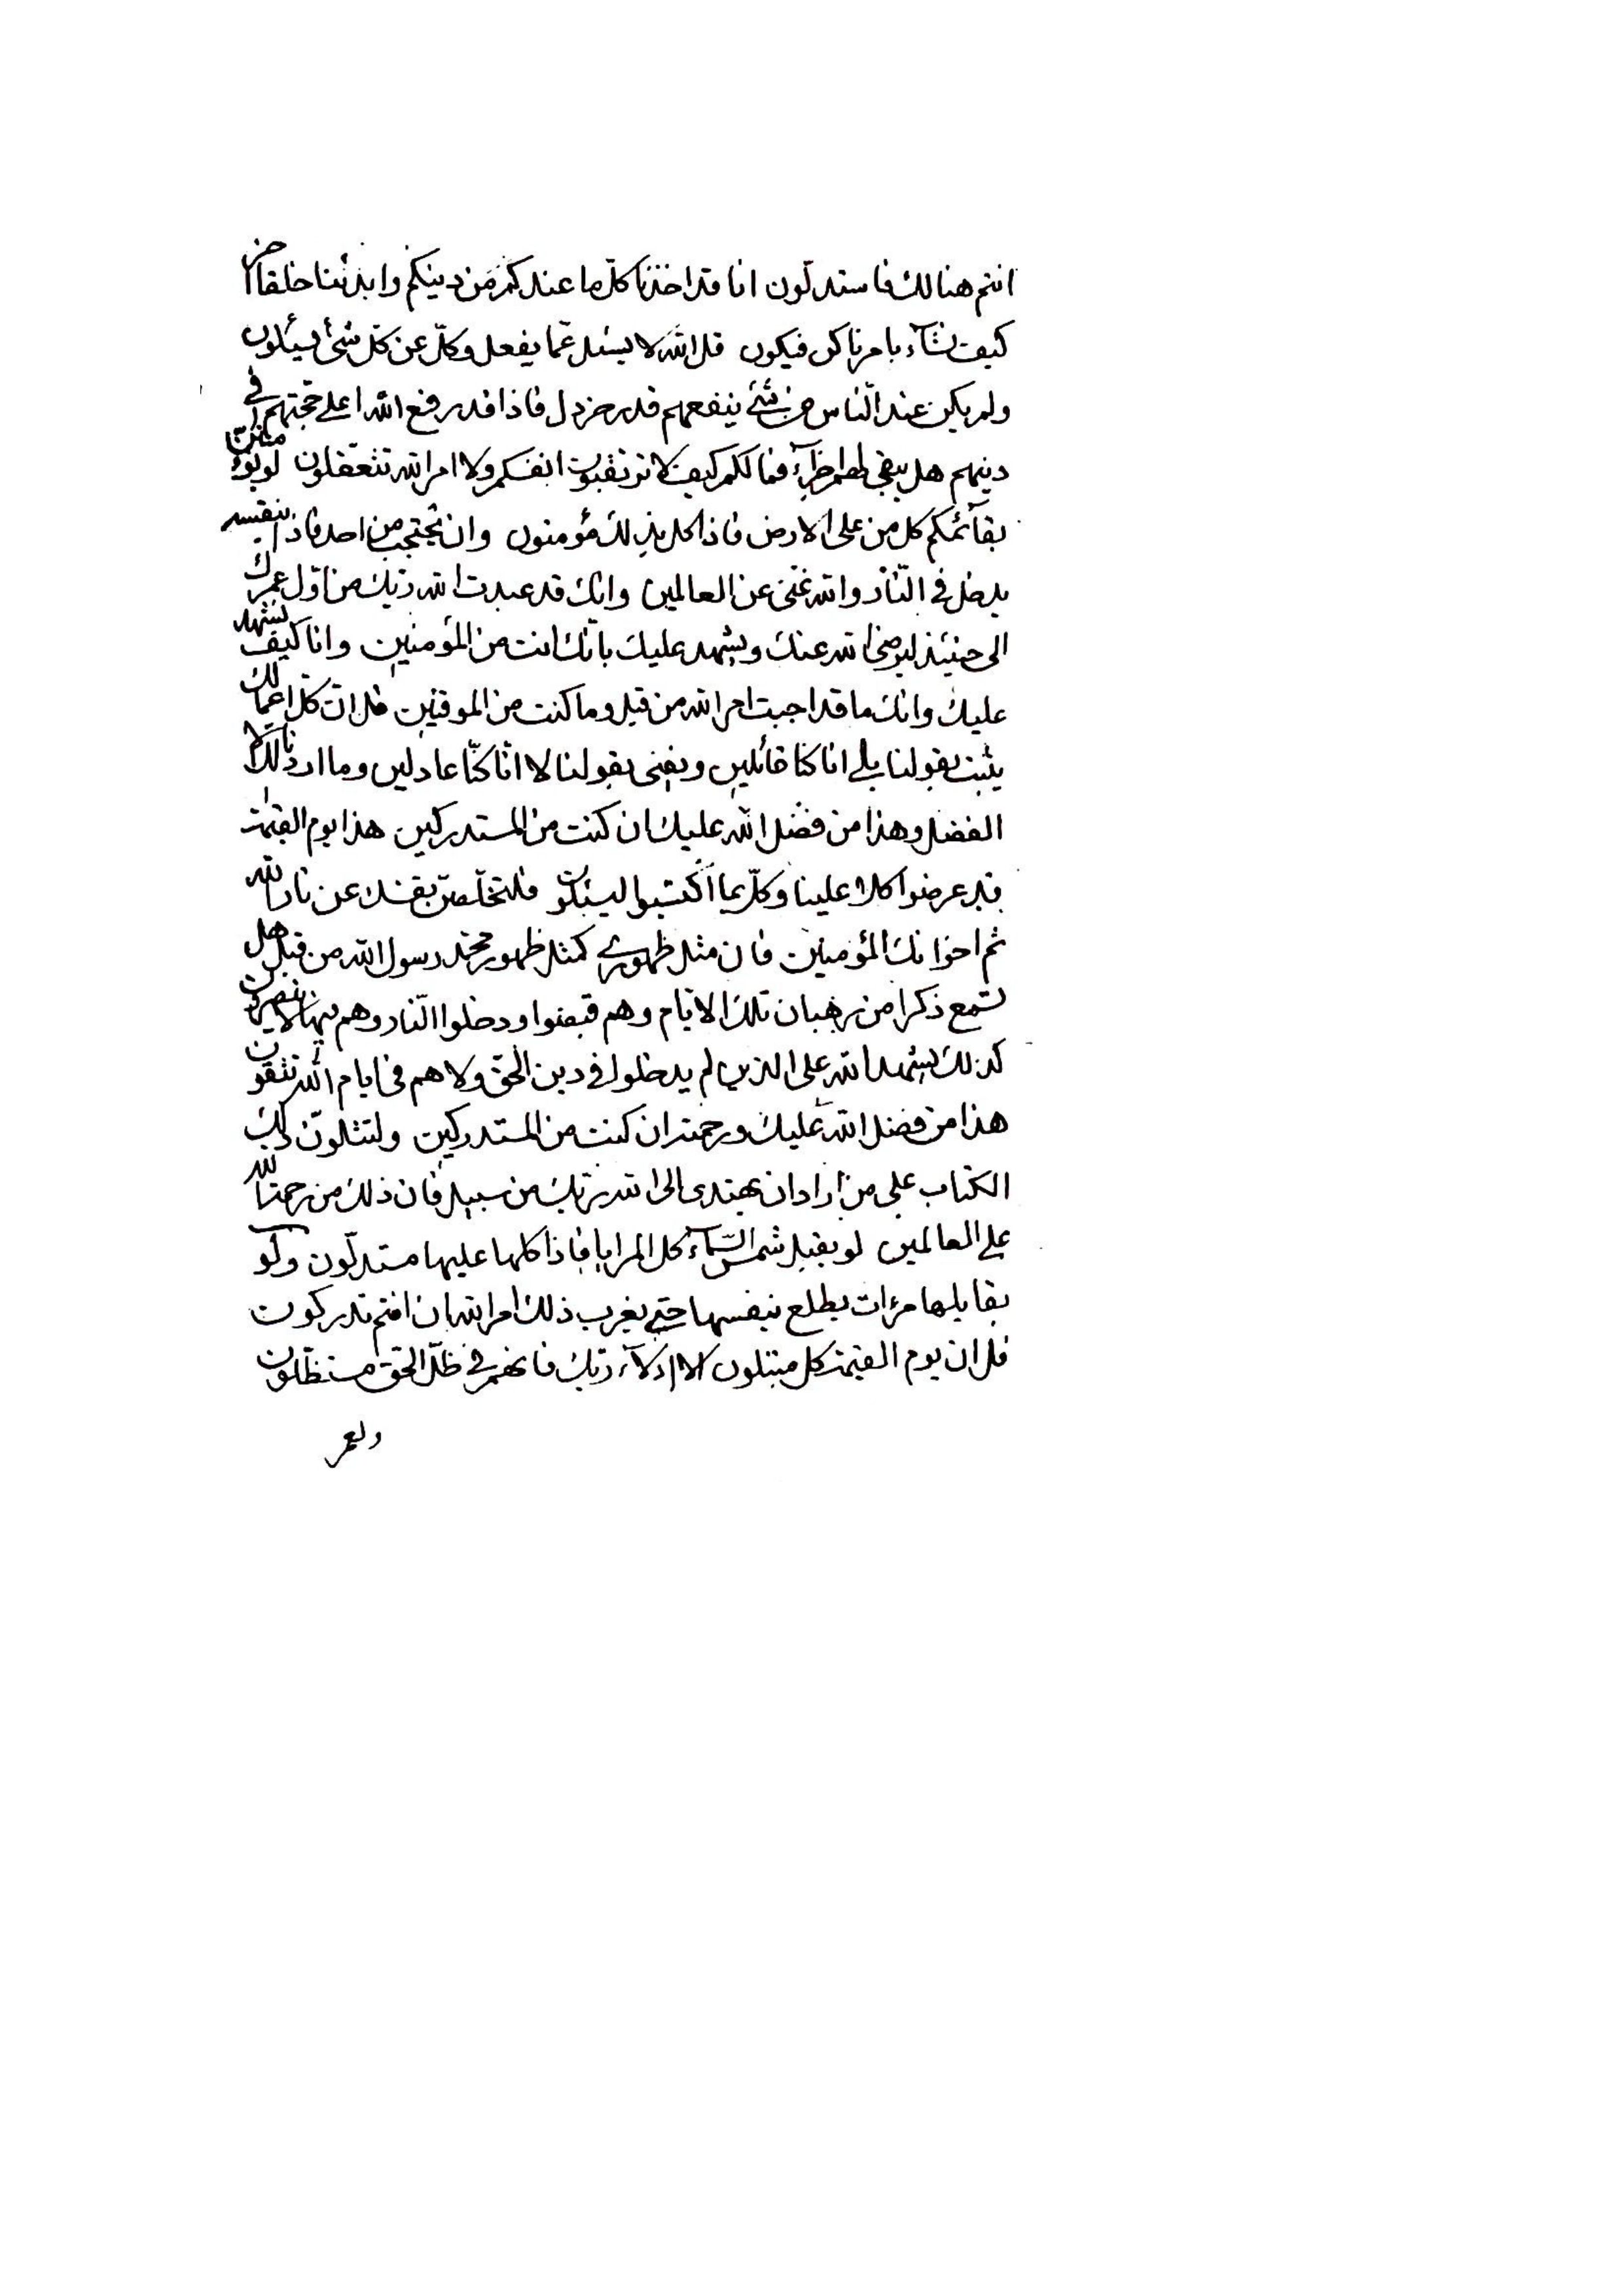 انتم هنالك فاستدلّون انا قد اخذنا كلّ ما عندكم من دينكم وابدئنا خلقا اخر
كيف نشآء بامرنا كن فيكون قل الله لا يسئل عمّا يفعل وكلّ عن كلّ شئ يسئلون
ولم يكن عند النّاس من شئ ينفعهم قدر خردل فاذا قد رفع الله اعلى حجّتهم في
دينهم هل يبقى لهم اخرآء فما لكم كيف لا ترتقبون انفسكم ولا امر الله تتعقلون لو يؤمننّ
بقآئمكم كل من على الارض فاذا كل بذلك مؤمنون وان يحتجب من احد فاذا بنفسه
يدخل في النّار والله غنى عن العالمين وانك قد عبدت الله ربك من اوّل عمرك
الى حينئذ ليرضى الله عنك ويشهد عليك بانّك انت من المؤمنين وانا كيف نشهد
عليك وانك ما قد اجبت امر الله من قبل وما كنت من الموقنين قل ان كل اعمالك
يثبت بقولنا بلى انا كنا قائلين ويفنى بقولنا لا انّا كنّا عادلين وما اردنا لك الا
الفضل وهذا من فضل الله عليك ان كنت من المستدركين هذا يوم القيمة
قد عرضوا كلا علينا وكلّ عما اكتسبوا ليسئلون فلتخلّصنّ نفسك عن نار الله
ثم اخوانك المؤمنين فان مثل ظهوري كمثل ظهور محمد رسول الله من قبل هل
تسمع ذكرا من رهبان تلك الايّام وهم قبضوا ودخلوا النّار وهم فيها لا ينصرون
كذلك يشهد الله على الذين لم يدخلوا في دين الحق ولا هم في ايام الله يتقون
هذا من فضل الله عليك ورحمته ان كنت من المستدركين ولتتلونّ ذلك
الكتاب على من اراد ان يهتدى الى الله ربك من سبيل فان ذلك من رحمة الله
على العالمين لو يقبل شمس السّمآء كل المرايا فاذا كلها عليها مستدلّون ولو
يقابلها مرءات يطلع بنفسها حتى يغرب ذلك امر الله ان انتم تدركون
قل ان يوم القيمة كل مبتلون الا ادلآء ربك فانهم في ظلّ الحق مستظلون
ولعمر